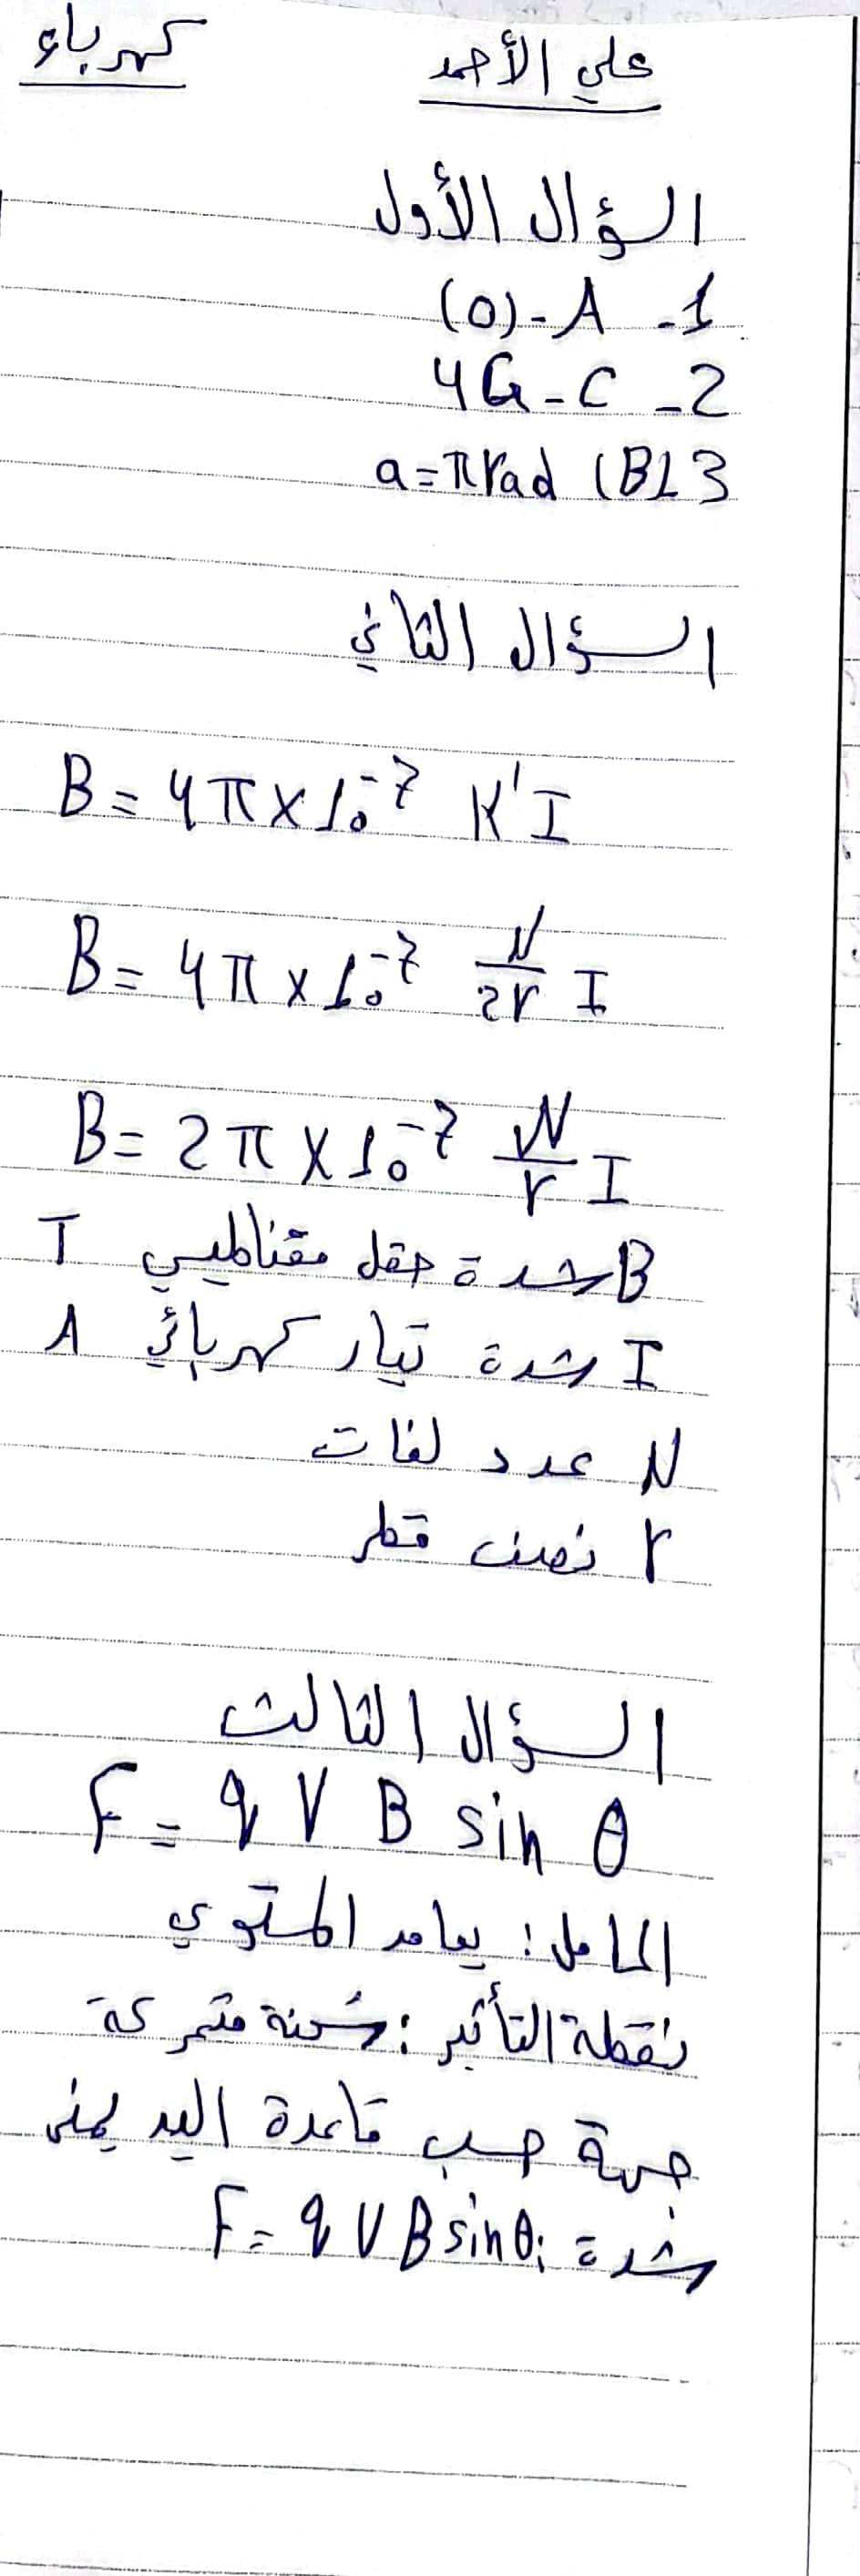 علي الأحمد كهرباء
السؤال الأول
1- A - (0)
2- C - 4G
3- B) a = π rad
السؤال الثاني
B = 4π × 10⁻⁷ K' I
B = 4π × 10⁻⁷ N/2r I
B = 2π × 10⁻⁷ N/r I
B شدة حقل مغناطيسي T
I شدة تيار كهربائي A
N عدد لفات
r نصف قطر
السؤال الثالث
F = q V B sin θ
الحامل: يعامد المستوي
نقطة التأثير: شحنة متحركة
جهة حسب قاعدة اليد يمنى
شدة: F = q V B sin θ